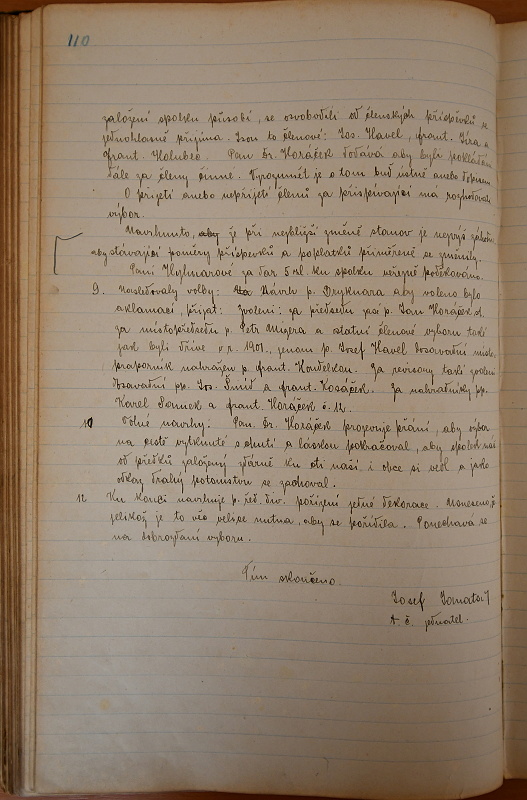 110
založení spolku působí, se osvobodili od členských příspěvků se
jednohlasně přijímá. Jsou to členové: Jos. Havel, frant. Jíra a
frant. Holubec. Pan Dr. Horáček dodává aby byli pokládáni
dále za členy činné. Vyrozumět je o tom buď ústně anebo dopisem
O přijetí anebo nepřijetí členů za přispívající má rozhodovati
výbor.
Navrhnuto, aby že při nejbližší změně stanov je nejvýš záhodno
aby stávající poměry příspěvků a poplatků přiměřeně se změnily.
Paní Hylmarové za dar 5 zl. ku spolku veřejně poděkováno.
9. Následovaly volby: Návrh p. Dryknara aby voleno bylo
aklamací, přijat: Zvoleni: za předsedu zas p. Jan Horáček st.
za místopředsedu p. Petr a ostatní členové výboru tací
jak byli dříve v r. 1901, jenom p. Josef Havel dosavadní
praporník nahražen p. frant. Houdelkou. Za revisory tací zvoleni
dosavadní pp. Jos. Šmíd a frant. Kosáček. Za náhradníky pp.
Karel Sonnek a frant. Horáček č. 12.
10 Volné návrhy: Pan Dr. Horáček projevuje přání, aby výbor
na cestě vytknuté s chutí a láskou pokračoval, aby spolek náš
od předků založený zdárně ku cti naší i obce si vedl a jako
odkaz drahý potomstvu se zachoval.
12 Ku konci navrhuje p. řed. div. pořízení jedné dekorace. Usneseno,
jelikož je to věc velice nutná, aby se pořídila. Ponechává se
na dobrozdání výboru.
Tím skončeno.
Josef
t. č. jednatel.